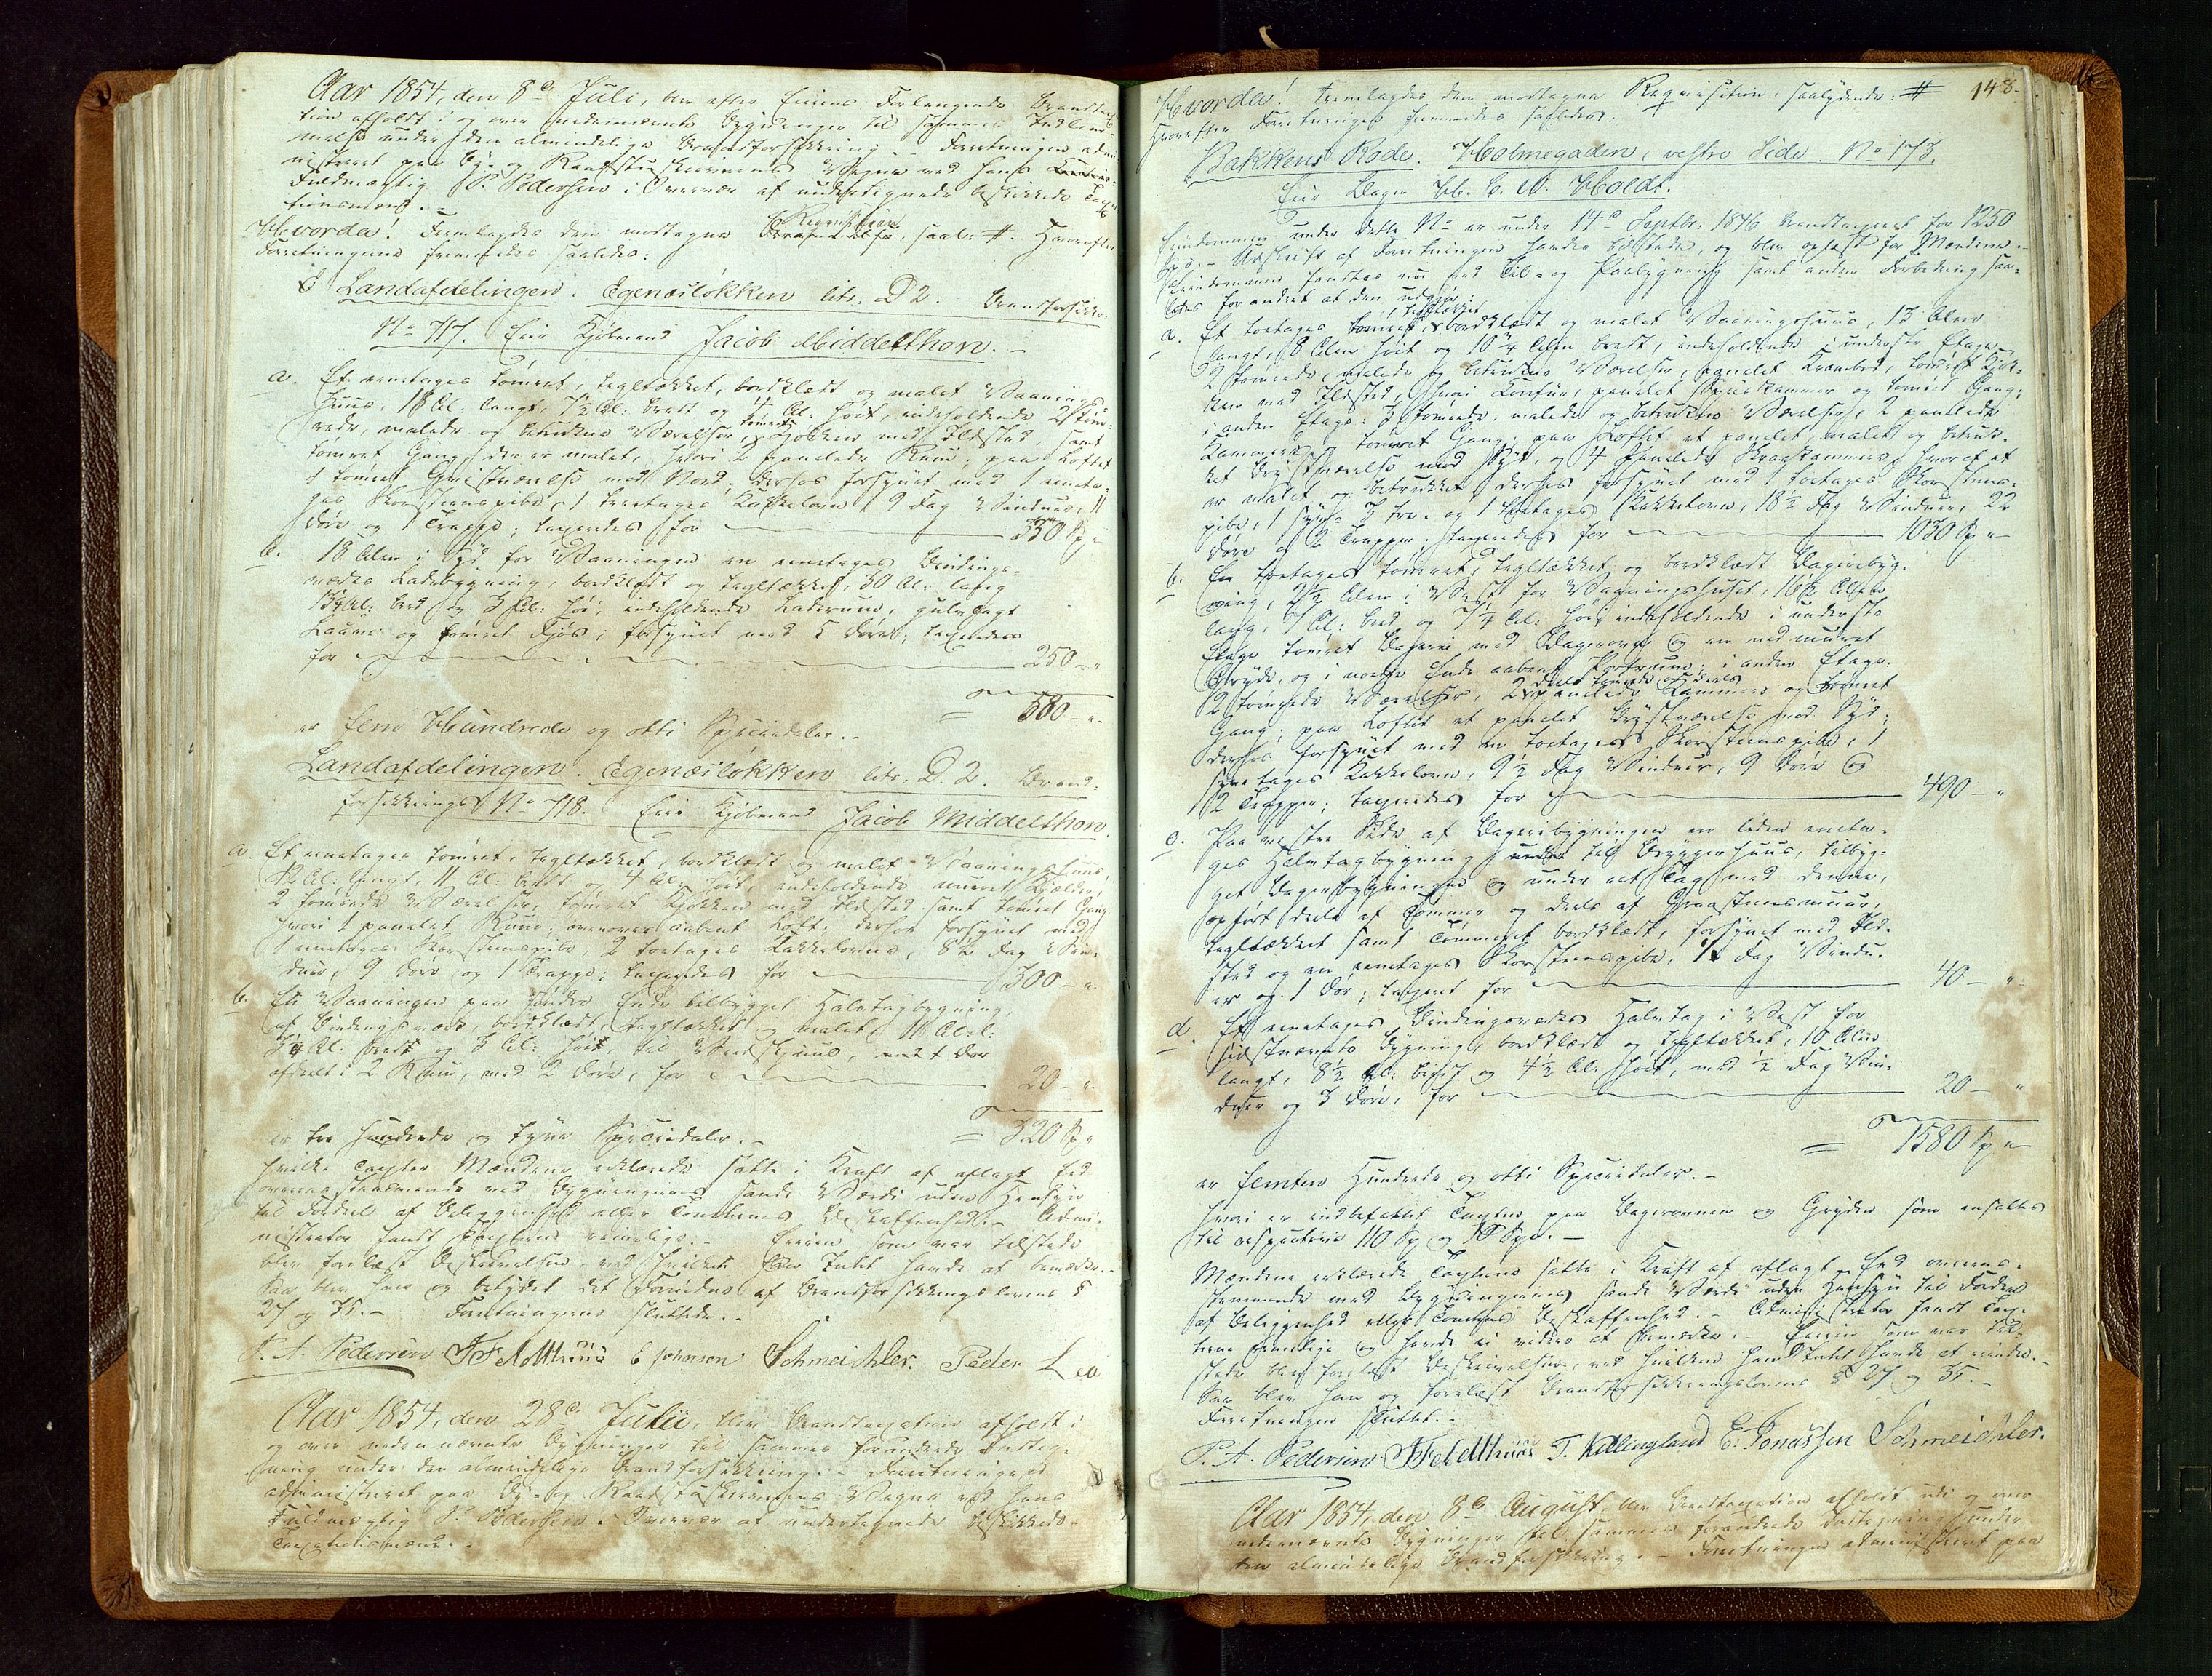 Aar 1854, den 8de Juli, blev efter Eierens Forlangende Brandtaxa-
tion afholdt i og over nedennævnte Bygninger til sammes Indlem-
melse under den almindelige Brandforsikkring. Forretningen admi-
nistreret paa By- og Raadstueskriverens Vegne ved hans
Fuldmægtig P. Pedersen i Overvær af undertegnede beskikkede Taxa-
tionsmænd. -
Hvorda! Fremlagdes den modtagne Requisition, saal: #. Hvorefter
Forretningerne fremmedes saaledes:
Landafdelingen. Egenæsløkken litr. D 2. Brandforsikkr:
No 717. Eier Kjøbmand Jacob Middelthon. -
a. Et eenetages tømret, tegltækket, bordklædt og malet Vaanings-
huus, 18 Al: langt, 7½ Al: bredt og 4 Al: høit, indeholdende 2 tøm-
rede, malede og betrukne Værelser, tømret Kjøkken med Ildsted, samt
tømret Gang, der er malet, hvori 2 panelede Rum; paa Loftet
1 tømret Qvistværelse mod Nord; derhos forsynet med 1 eeneta-
ges Skorsteenspibe, 1 treetages Kakkelovn, 9 Fag Vinduer, 11
Døre og 1 Trappe; taxeredes for 330 Sp "
b. 18 Alen i Syd for Vaaningen en eenetages Bindings-
værks Ladebygning, bordklædt og tegltækket, 30 Al: lang
13¼ Al: bred og 3 Al: høi, indeholdende Laderum, gulvlagt
Laave og tømret Fjøs; forsynet med 5 Døre; taxeredes
for 250 - "
= 580 - "
er fem Hundrede og otti Speciedaler. -
Landafdelingen. Egenæsløkken litr. D. 2. Brand-
forsikkrings No 718. Eier Kjøbmand Jacob Middelthon.
a. Et eenetages tømret, tegltækket, bordklædt og malet Vaaningshuus,
12 Al: langt, 11 Al: bredt og 4 Al: høit, indeholdende muret Kjælder,
2 tømrede Værelser, tømret Kjøkken med Ildsted samt tømret Gang
hvori 1 panelet Rum; ovenover aabent Loft; derhos forsynet med
1 eenetages Skorsteenspibe, 2 toetages Kakkelovne, 8½ Fag Vin-
duer, 9 Døre og 1 Trappe; taxeredes for 300 - "
b. En Vaaningen paa søndre Ende tilbygget Halvtagbygning,
af Bindingsværk, bordklædt, tegltækket og malet, 11 Al: l:
3¼ Al: bredt og 3 Al: høit, til Vedskjuul, med 1 Dør
afdeelt i 2 Rum, med 2 Døre, for 20 - "
= 320 Sp "
er tre hundrede og tyve Speciedaler. -
Hvilke Taxter Mændene erklærede satte i Kraft af aflagt Eed
overensstemmende med Bygningernes sande Værdi uden Hensyn
til Fordeel af Beliggenhed eller Tomtens Beskaffenhed. - Admi-
nistrator fandt Taxterne rimelige. - Eieren som var tilstede
blev forelæst Beskrivelsen, ved hvilken han Intet havde at bemærke. -
Saa blev han og betydet det Fornødne af Brandforsikkringslovens §
27 og 35. - Forretningerne sluttede. -
P. A. Pedersen FFeldthuus C Johnsen Schmeichler. Peder Lea
Aar 1854, den 28de Julii, blev Brandtaxation afholdt i
og over nedennævnte Bygninger til sammes forandrede Indteg-
ning under den almindelige Brandforsikkring. - Forretningen
administreret paa By- og Raadstueskriverens Vegne ved hans
Fuldmægtig P. Pedersen i Overvær af undertegnede beskikkede
Taxationsmænd. -
148.
Hvorda! Fremlagdes den modtagne Requisition, saalydende: #
Hvorefter Forretningen fremmedes saaledes:
Bakkens Rode. Holmegaden, vestre Side. No 173.
Eier Bager H. C. W. Holdt.
Eiendommen under dette No er under 14de Septbr. 1846 brandtaxeret for 1250
Spd. - Udskrift af Forretningen havdes tilstede, og blev oplæst for Mændene. -
Eiendommen fandtes nu ved Til- og Paabygning samt anden Forbedring saa-
ledes forandret at den udgjør:
a. Et toetages tømret, tegltækket bordklædt og malet Vaaningshuus, 13 Alen
langt, 8 Alen høit og 10¼ Alen bredt, indeholdende i underste Etage
2 tømrede, malede og betrukne Værelser, panelet Krambod, tømret Kjøk-
ken med Ildsted, hvori Komfur, panelet Spiiskammer og tømret Gang;
i anden Etage: 3 tømrede, malede og betrukne Værelser, 2 panelede
Kammere og tømret Gang; paa Loftet et panelet, malet og betruk-
ket Qvistværelse mod Syd, og 4 panelede Skraakammere, hvoraf et
er malet og betrukket; derhos forsynet med 1 toetages Skorsteens-
pibe, 1 3 tre- og 1 toetages Kakkelovn, 18½ Fag Vinduer, 22
Døre og 2 Trapper; taxeredes for 1030 Sp "
b. En toetages tømret, tegltækket og bordklædt Bageribyg-
ning, 2½ Alen i Vest for Vaaningshuset, 16½ Alen
lang, 7 Al: bred og 7¼ Al: høi, indeholdende i underste
Etage tømret Bageri med Bagerovn og en nedmuret
Gryde, og i nordre Ende aabent Portrum; i anden Etage:
2 tømrede Værelser, 2 deels tømrede og deels panelede Kammere og tømret
Gang; paa Loftet et panelet Qvistværelse mod Syd;
derhos forsynet med en toetages Skorsteenspibe, 1
treetages Kakkelovn, 9½ Fag Vinduer, 9 Døre og
2 Trapper; taxeredes for 490 - "
c. Paa vestre Side af Bageribygningen en liden eeneta-
ges Halvtagbygning til Bryggerhuus, tilbyg-
get Bageribygningen og under eet Tag med denne,
opført deels af Tømmer og deels af Graasteensmuur,
tegltækket samt Tømmeret bordklædt, forsynet med Ild-
sted og en eenetages Skorsteenspibe, 1 Fag Vindu-
er og 1 Dør; taxeret for 40 - "
d. Et eenetages Bindingsværks Halvtag i Vest for
sidstnævnte Bygning, bordklædt og tegltækket, 10 Alen
langt, 8½ Al: bredt og 4½ Al: høit, med ½ Fag Vin-
duer og 3 Døre, for 20 - "
= 1580 Sp "
er femten Hundrede og otti Speciedaler. -
Hvori er indbefattet Taxten paa Bagerovnen og Gryden som ansattes
til respective 110 Sp og 10 Spd. -
Mændene erklærede Taxterne satte i Kraft af aflagt Eed overens-
stemmende med Bygningernes sande Værdi uden Hensyn til Fordeel
af Beliggenhed eller Tomtens Beskaffenhed. - Administrator fandt Tax-
terne rimelige og havde ei videre at bemærke. - Eieren som var til-
stede blev forelæst Beskrivelsen, ved hvilken han Intet havde at erindre. -
Saa blev han og forelæst Brandforsikkringslovens § 27 og 35. -
Forretningen sluttet. -
P. A. Pedersen FFeldthuus T. Kallingland C. Jonassen Schmeichler.
Aar 1854, den 8de August, blev Brandtaxation afholdt udi og over
nedennævnte Bygninger til sammes forandrede Indtegning under
den almindelige Brandforsikkring. - Forretningen administreret paa